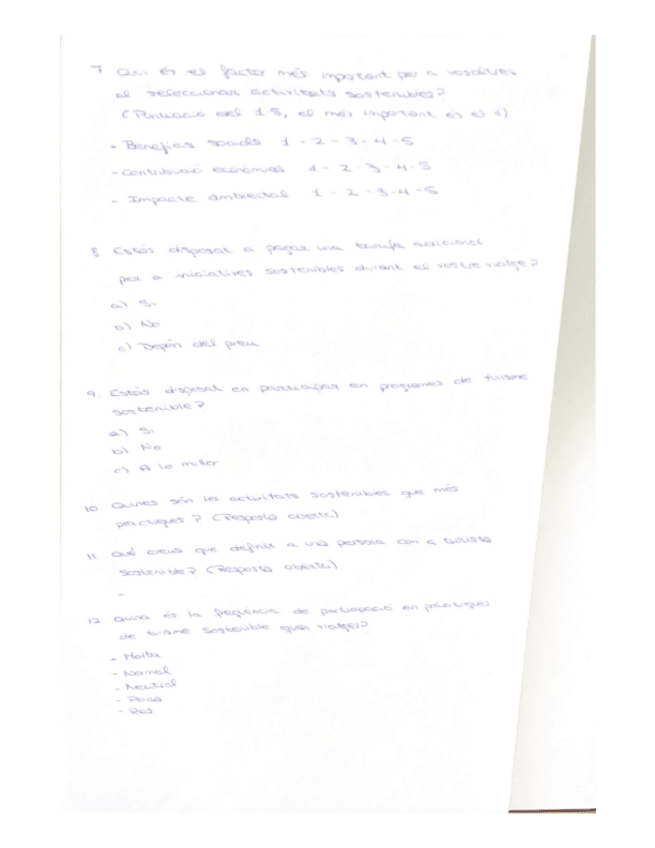 7 Qui és es factor més important per a vosaltres
al seleccionar activitats sostenibles?
(Puntuació del 1-5, el més important és es 1)
- Beneficis socials 1 - 2 - 3 - 4 - 5
- Contribució econòmica 1 - 2 - 3 - 4 - 5
- Impacte ambiental 1 - 2 - 3 - 4 - 5
8 Estás disposat a pagar una tarifa adicional
per a iniciatives sostenibles durant es vostre viatge?
a) Si
b) No
c) Depén del preu
9. Estás disposat en participar en programes de turisme
sostenible?
a) Si
b) No
c) A lo millor
10. Quines són les activitats sostenibles que més
practiques? (Resposta oberta)
11. Qué creus que definir a una persona com a turista
sostenible? (Resposta oberta)
-
12. Quina és la freqüència de participació en pràctiques
de turisme sostenible quan viatges?
- Molta
- Normal
- Neutral
- Poca
- Res